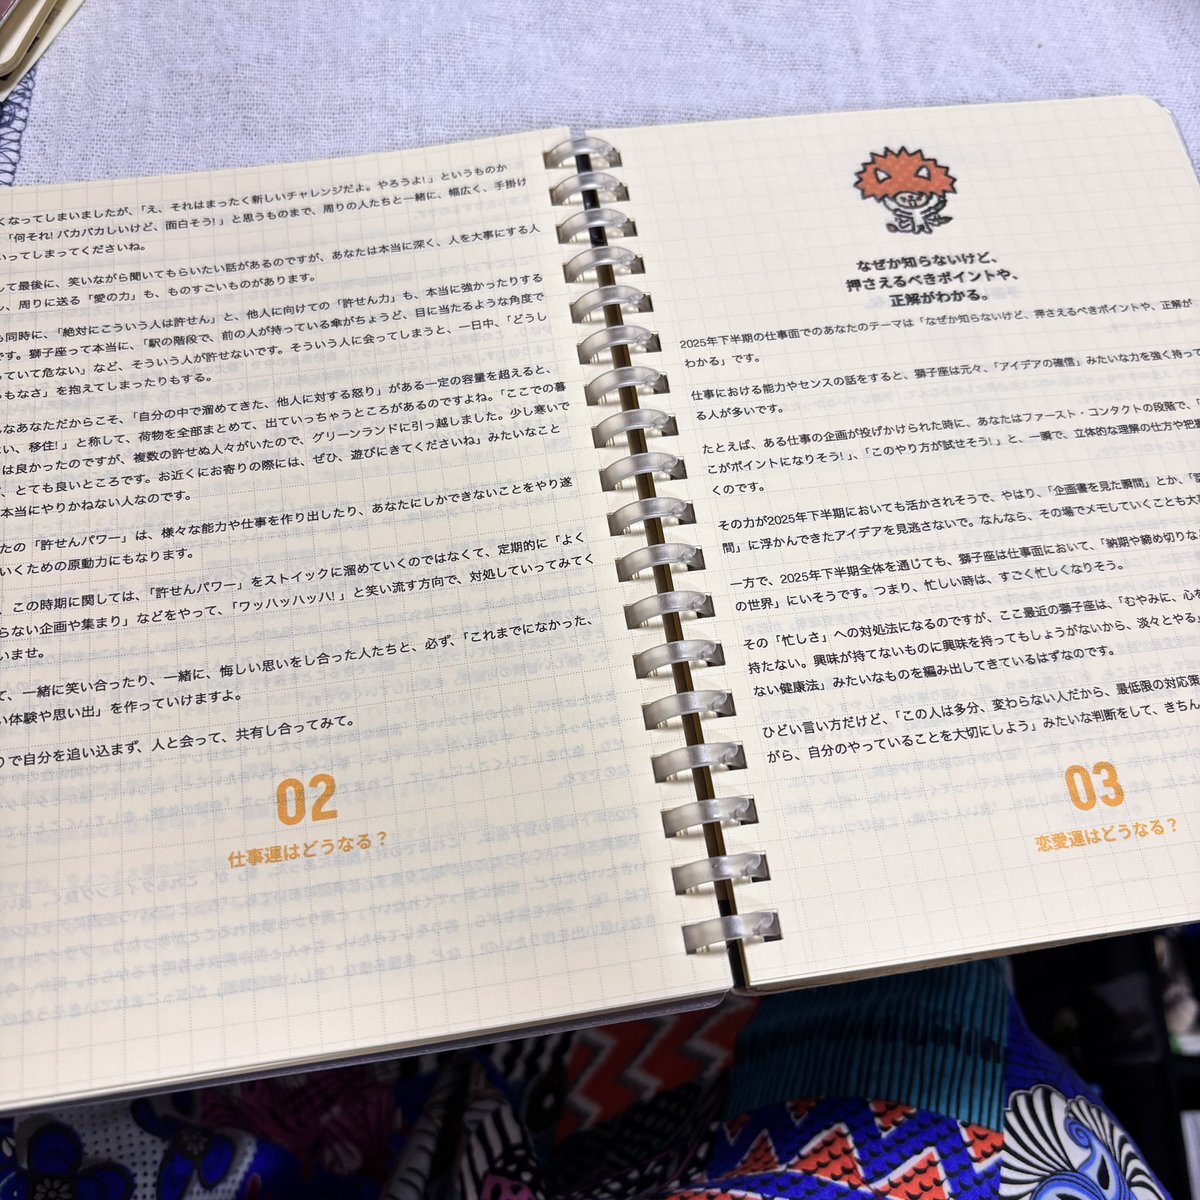 くなってしまいましたが、「え、それはまったく新しいチャレンジだよ。やろうよ!」というものか
「何それ! バカバカしいけど、面白そう!」と思うものまで、周りの人たちと一緒に、幅広く、手掛け
いってしまってくださいね。
して最後に、笑いながら聞いてもらいたい話があるのですが、あなたは本当に深く、人を大事にする人
し、周りに送る「愛の力」も、ものすごいものがあります。
も同時に、「絶対にこういう人は許せん」と、他人に向けての「許せん力」も、本当に強かったりする
です。獅子座って本当に、「駅の階段で、前の人が持っている傘がちょうど、目に当たるような角度で
っていて危ない」など、そういう人が許せないです。そういう人に会ってしまうと、一日中、「どうし
うもなさ」を抱えてしまったりもする。
なあなただからこそ、「自分の中で溜めてきた、他人に対する怒り」がある一定の容量を超えると、
い、移住!」と称して、荷物を全部まとめて、出ていっちゃうところがあるのですよね。「ここでの暮
は良かったのですが、複数の許せぬ人々がいたので、グリーンランドに引っ越しました。少し寒いで
、とても良いところです。お近くにお寄りの際には、ぜひ、遊びにきてくださいね」みたいなこと
本当にやりかねない人なのです。
たの「許せんパワー」は、様々な能力や仕事を作り出したり、あなたにしかできないことをやり遂
いくための原動力にもなります。
、この時期に関しては、「許せんパワー」をストイックに溜めていくのではなくて、定期的に「よく
らない企画や集まり」などをやって、「ワッハッハッハ!」と笑い流す方向で、対処していってみてく
いませ。
て、一緒に笑い合ったり、一緒に、悔しい思いをし合った人たちと、必ず、「これまでになかった、
い体験や思い出」を作っていけますよ。
りで自分を追い込まず、人と会って、共有し合ってみて。
02
仕事運はどうなる?
なぜか知らないけど、
押さえるべきポイントや、
正解がわかる。
2025年下半期の仕事面でのあなたのテーマは「なぜか知らないけど、押さえるべきポイントや、正解が
わかる」です。
仕事における能力やセンスの話をすると、獅子座は元々、「アイデアの確信」みたいな力を強く持って
る人が多いです。
たとえば、ある仕事の企画が投げかけられた時に、あなたはファースト・コンタクトの段階で、「
こがポイントになりそう!」、「このやり方が試せそう!」と、一瞬で、立体的な理解の仕方や把握
くのです。
その力が2025年下半期においても活かされそうで、やはり、「企画書を見た瞬間」とか、「
間」に浮かんできたアイデアを見逃さないで。なんなら、その場でメモしていくことも大
一方で、2025年下半期全体を通じても、獅子座は仕事面において、「納期や締め切りな
の世界」にいそうです。つまり、忙しい時は、すごく忙しくなりそう。
その「忙しさ」への対処法になるのですが、ここ最近の獅子座は、「むやみに、心を
持たない。興味が持てないものに興味を持ってもしょうがないから、淡々とやる」
ない健康法」みたいなものを編み出してきているはずなのです。
ひどい言い方だけど、「この人は多分、変わらない人だから、最低限の対応策
がら、自分のやっていることを大切にしよう」みたいな判断をして、きちん
03
恋愛運はどうなる?